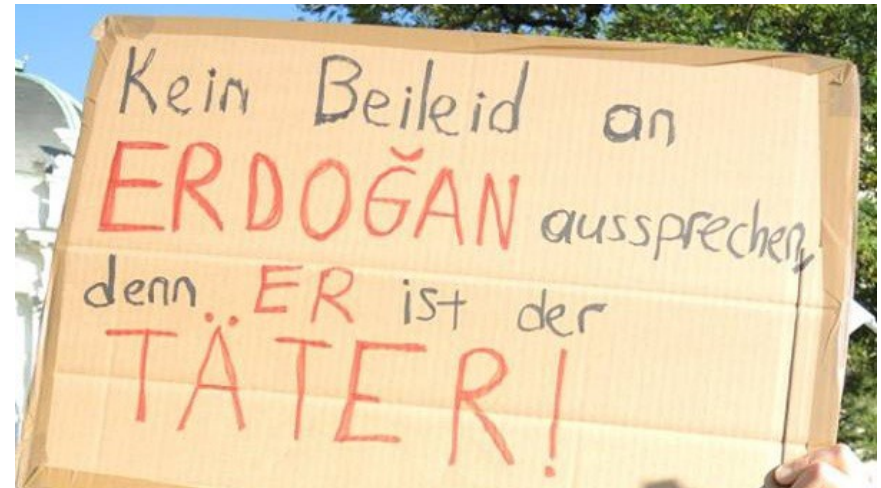 Kein Beileid an
ERDOĞAN aussprechen,
denn ER ist der
TÄTER!